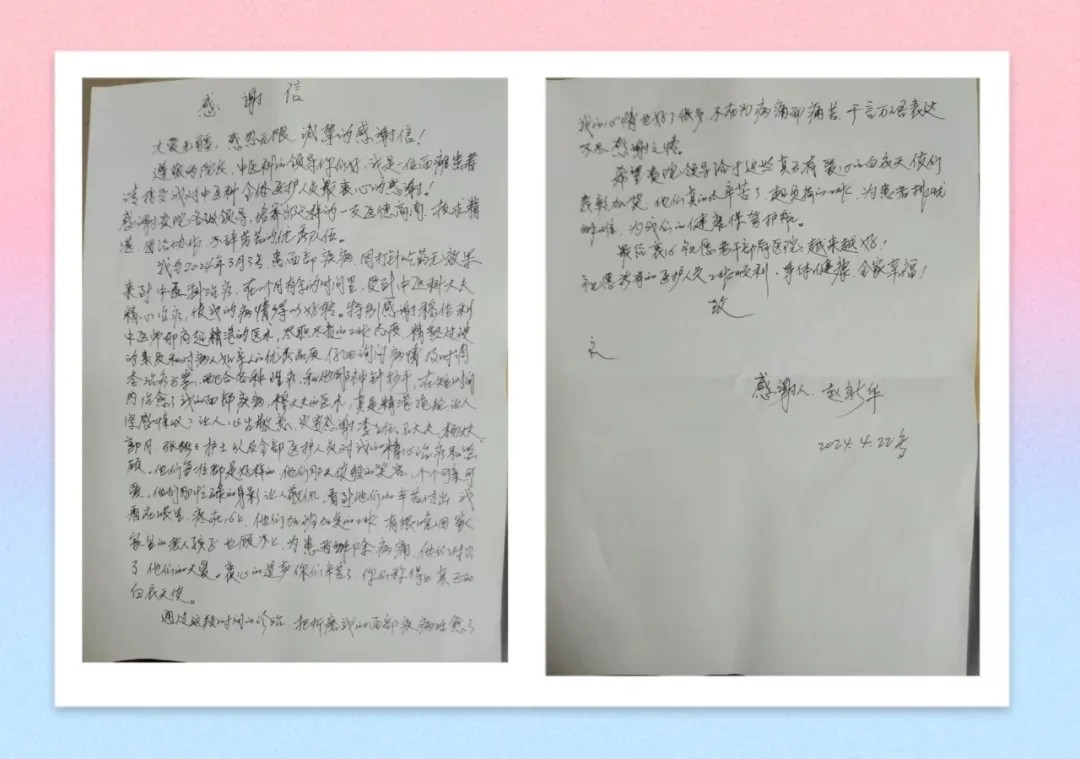 感谢信
大爱无疆,感恩无限,诚挚的感谢信!
尊敬的院长,中医科的领导你们好,我是一位面瘫患者
请接受我对中医科全体医护人员最衷心的感谢!
感谢贵院各级领导,培养出这样的一支医德高尚、技术精
湛、团结协作、不辞劳苦的优秀队伍。
我于2024年3月3号,患面部疾病,因打针吃药无效果
来到中医科治疗,在一个月有余的时间里,受到中医科大夫
精心治疗,使我的病情得以好转。特别感谢
中医师那高超精湛的医术,尽职尽责的工作态度,精
的素质和对病人如亲人的优秀品质,仔细询问病情及时调
整治疗方案,配合各种理疗,和他那神针妙手,在短时间
内治愈了我的面部疾病,穆大夫的医术,真是精湛
让人心生敬意,感谢李主任、石大夫、杨大夫、
郭月、护士以及全部医护人员对我的精心治疗和照
顾。他们每一位都是好样的,他们那天使般的笑容,个个可亲可
爱,他们那忙碌的身影让人敬佩,看到他们的辛苦付出,我
看在眼里,疼在心上,他们加班加点的工作,有
家里的老人孩子也顾不上,为患者解除病痛,他们付出
了他们的大爱。衷心的道声你们辛苦了,你们称得上真正的
白衣天使。
通过这段时间的诊治,把折磨我的面部疾病治愈了
我的心情也好了很多,不在为病痛而痛苦,千言万语表达
不尽感谢之情。
希望贵院领导给于这些真正有爱心的白衣天使们
表彰加奖,他们真的太辛苦了,超负荷的工作,为患者排忧
解难,为我们的健康保驾护航。
最后衷心祝愿老干部局医院越来越好!
祝愿所有的医护人员工作顺利,身体健康,全家幸福!
致
礼
感谢人 赵新华
2024.4.22号